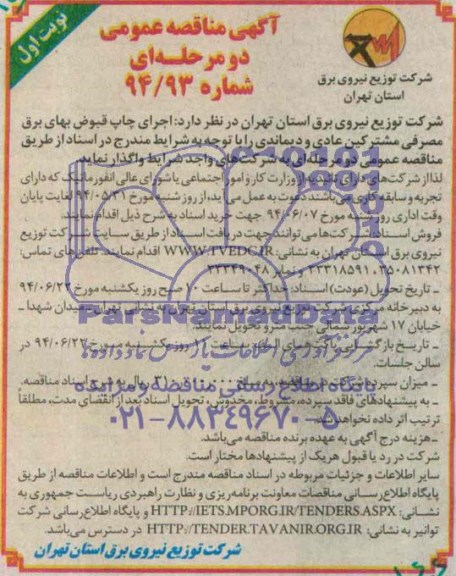 نوبت اول
آگهی مناقصه عمومی
دو مرحله‌ای
شماره ۹۴/۹۳
شرکت توزیع نیروی برق
استان تهران
شرکت توزیع نیروی برق استان تهران در نظر دارد: اجرای چاپ قبوض بهای برق
مصرفی مشترکین عادی و دیماندی را با توجه به شرایط مندرج در اسناد از طریق
مناقصه عمومی دو مرحله‌ای به شرکت‌های واجد شرایط واگذار نماید.
لذا از شرکت‌های دارای تائیدیه از وزارت کار و امور اجتماعی یا شورای عالی انفورماتیک که دارای
تجربه و سابقه کاری می‌باشند دعوت به عمل می‌آید، از روز شنبه مورخ ۹۴/۰۵/۳۱ لغایت پایان
وقت اداری روز شنبه مورخ ۹۴/۰۶/۰۷ جهت خرید اسناد به شرح ذیل اقدام نمایند.
فروش اسناد: شرکت‌ها می‌توانند جهت دریافت اسناد از طریق سایت شرکت توزیع
نیروی برق استان تهران به نشانی: WWW.TVEDC.IR اقدام نمایند. تلفن‌های تماس:
۳۵۰۸۱۳۴۲، ۳۳۳۱۸۵۹۱ و نمابر ۳۳۳۴۹۰۴۸
ـ تاریخ تحویل (عودت) اسناد: حداکثر تا ساعت ۱۰ صبح روز یکشنبه مورخ ۹۴/۰۶/۲۲
به دبیرخانه مرکزی شرکت توزیع نیروی برق استان تهران به نشانی: تهران، میدان شهدا ـ
خیابان ۱۷ شهریور شمالی جنب مترو تحویل نمایند.
ـ تاریخ بازگشایی پاکت‌های اسناد: ساعت ۱۰ روز یکشنبه مورخ ۹۴/۰۶/۲۲ در
سالن جلسات.
ـ میزان سپرده شرکت در مناقصه: به مبلغ ریال به شرح اسناد مناقصه.
ـ به پیشنهادهای فاقد سپرده، مشروط، مخدوش، تحویل اسناد بعد از انقضای مدت، مطلقاً
ترتیب اثر داده نخواهد شد.
ـ هزینه درج آگهی به عهده برنده مناقصه می‌باشد.
شرکت در رد یا قبول هریک از پیشنهادها مختار است.
سایر اطلاعات و جزئیات مربوطه در اسناد مناقصه مندرج است و اطلاعات مناقصه از طریق
پایگاه اطلاع‌رسانی مناقصات معاونت برنامه‌ریزی و نظارت راهبردی ریاست جمهوری به
نشانی: HTTP://IETS.MPORG.IR/TENDERS.ASPX و پایگاه اطلاع‌رسانی شرکت
توانیر به نشانی: HTTP://TENDER.TAVANIR.ORG.IR در دسترس می‌باشد.
شرکت توزیع نیروی برق استان تهران
ParsNamadData
مرکز فرآوری اطلاعات پارس نماد داده‌ها
پایگاه اطلاع رسانی مناقصه و مزایده
۰۲۱-۸۸۳۴۹۶۷۰-۵